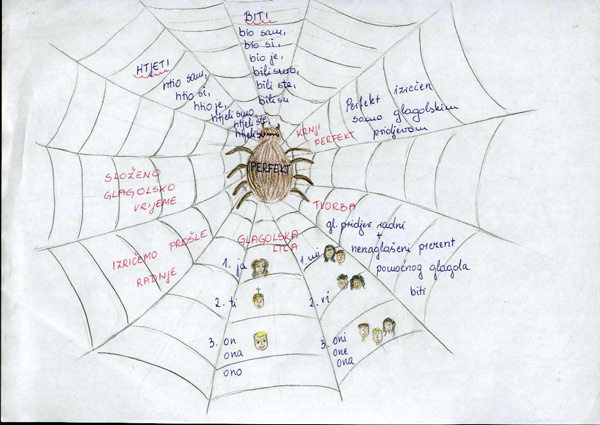 BITI
bio sam,
bio si,
bio je,
bili smo,
bili ste,
bili su
HTJETI
htio sam,
htio si,
htio je,
htjeli smo,
htjeli ste,
htjeli su
KRNJI
PERFEKT
Perfekt izrečen
samo glagolskim
pridjevom
PERFEKT
SLOŽENO
GLAGOLSKO
VRIJEME
IZRIČEMO PROŠLE
RADNJE
GLAGOLSKA
LICA
1. ja
2. ti
3. on
ona
ono
1. mi
2. vi
3. oni
one
ona
TVORBA
gl. pridjev radni
+
nenaglašeni prezent
pomoćnog glagola
biti